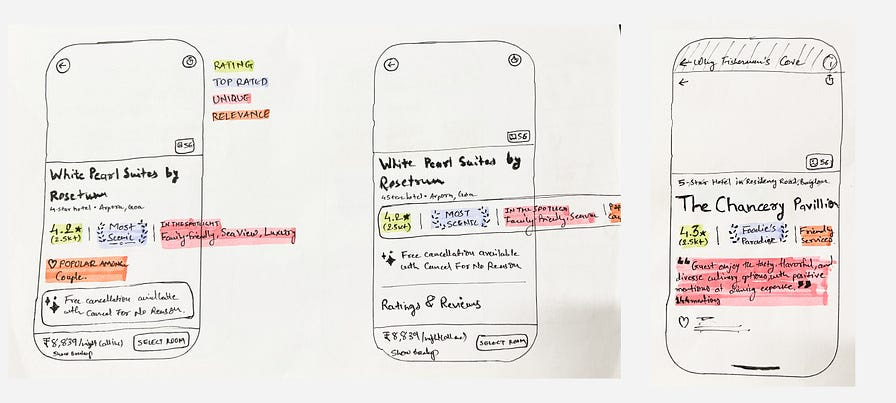 RATING
TOP RATED
UNIQUE
RELEVANCE
56
White Pearl Suites by
Rosetum
4-star hotel • Arpora, Goa
4.2★
(2.5k+)
MOST
SCENIC
IN THE SPOTLIGHT
Family-friendly, Sea View, Luxury
POPULAR AMONG
Couple.
Free cancellation available
with Cancel For No Reason.
₹8,839/night
Show Breakup
SELECT ROOM
56
White Pearl Suites by
Rosetum
4 star hotel • Arpora, Goa
4.2★
(2.5k+)
MOST
SCENIC
IN THE SPOTLIGHT
Family-friendly, Seaview
Free cancellation available
with Cancel For No Reason.
Ratings & Reviews
₹8,839/night
Show Breakup
SELECT ROOM
Fisherman's Cove
56
5-Star Hotel in Residency Road,
The Chancery Pavilion
4.3★
(2.5k+)
Foodie's
Paradise
Friendly
Services
"Guest enjoy the tasty, flavorful, and
diverse culinary options, with positive
mentions of dining experience."